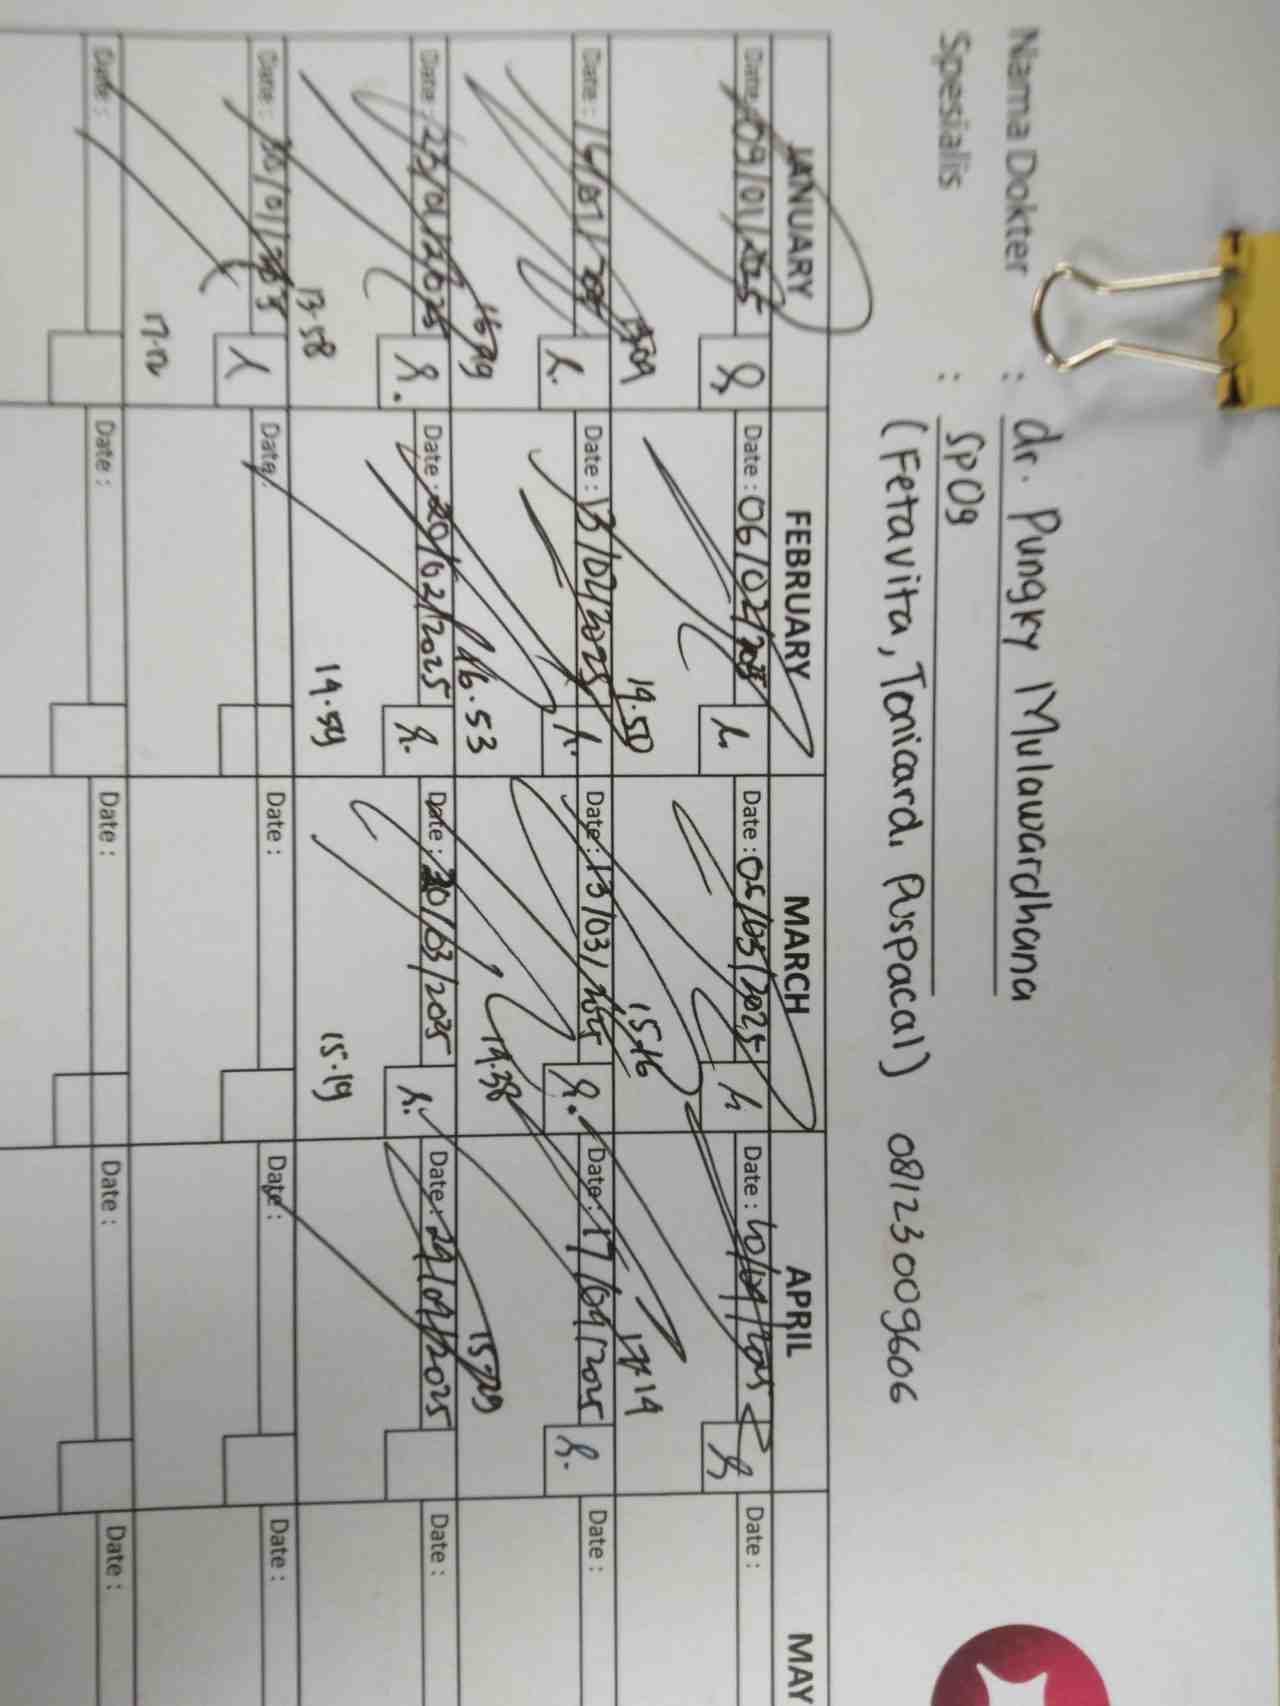 Nama Dokter : dr. Pungky Mulawardhana
Spesialis : SpOg
(Fetavita, Tonicard, Puspacal) 081230096 06
JANUARY FEBRUARY MARCH APRIL MAY
Date : 09/01/2025 Date : 06/02/2025 Date : 06/03/2025 Date : 10/04/2025 Date :
14.50 15.16 17.14
Date : 16/01/2025 Date : 13/02/2025 Date : 13/03/2025 Date : 17/04/2025 Date :
16.19 16.53 14.38 15.29
Date : 23/01/2025 Date : 20/02/2025 Date : 20/03/2025 Date : 24/04/2025 Date :
13.58 14.59 15.19
Date : 30/01/2025 Date : Date : Date : Date :
17.12
Date : Date : Date : Date : Date :